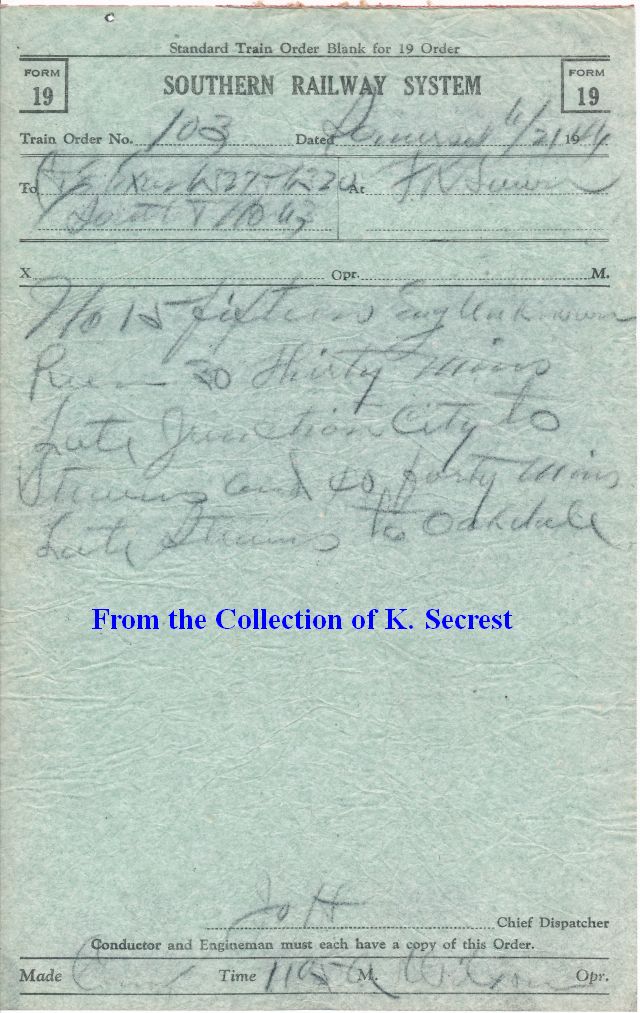 Standard Train Order Blank for 19 Order
FORM 19 SOUTHERN RAILWAY SYSTEM FORM 19
Train Order No. 103 Dated Somerset 6/21 19
To At
South
X Opr. M.
No 15 fifteen Eng Unknown
Run 30 thirty mins
Late Junction City to
Stearns and 40 forty mins
Late Stearns to Oakdale
From the Collection of K. Secrest
Chief Dispatcher
Conductor and Engineman must each have a copy of this Order.
Made Com Time 1105 A M. Wilson Opr.